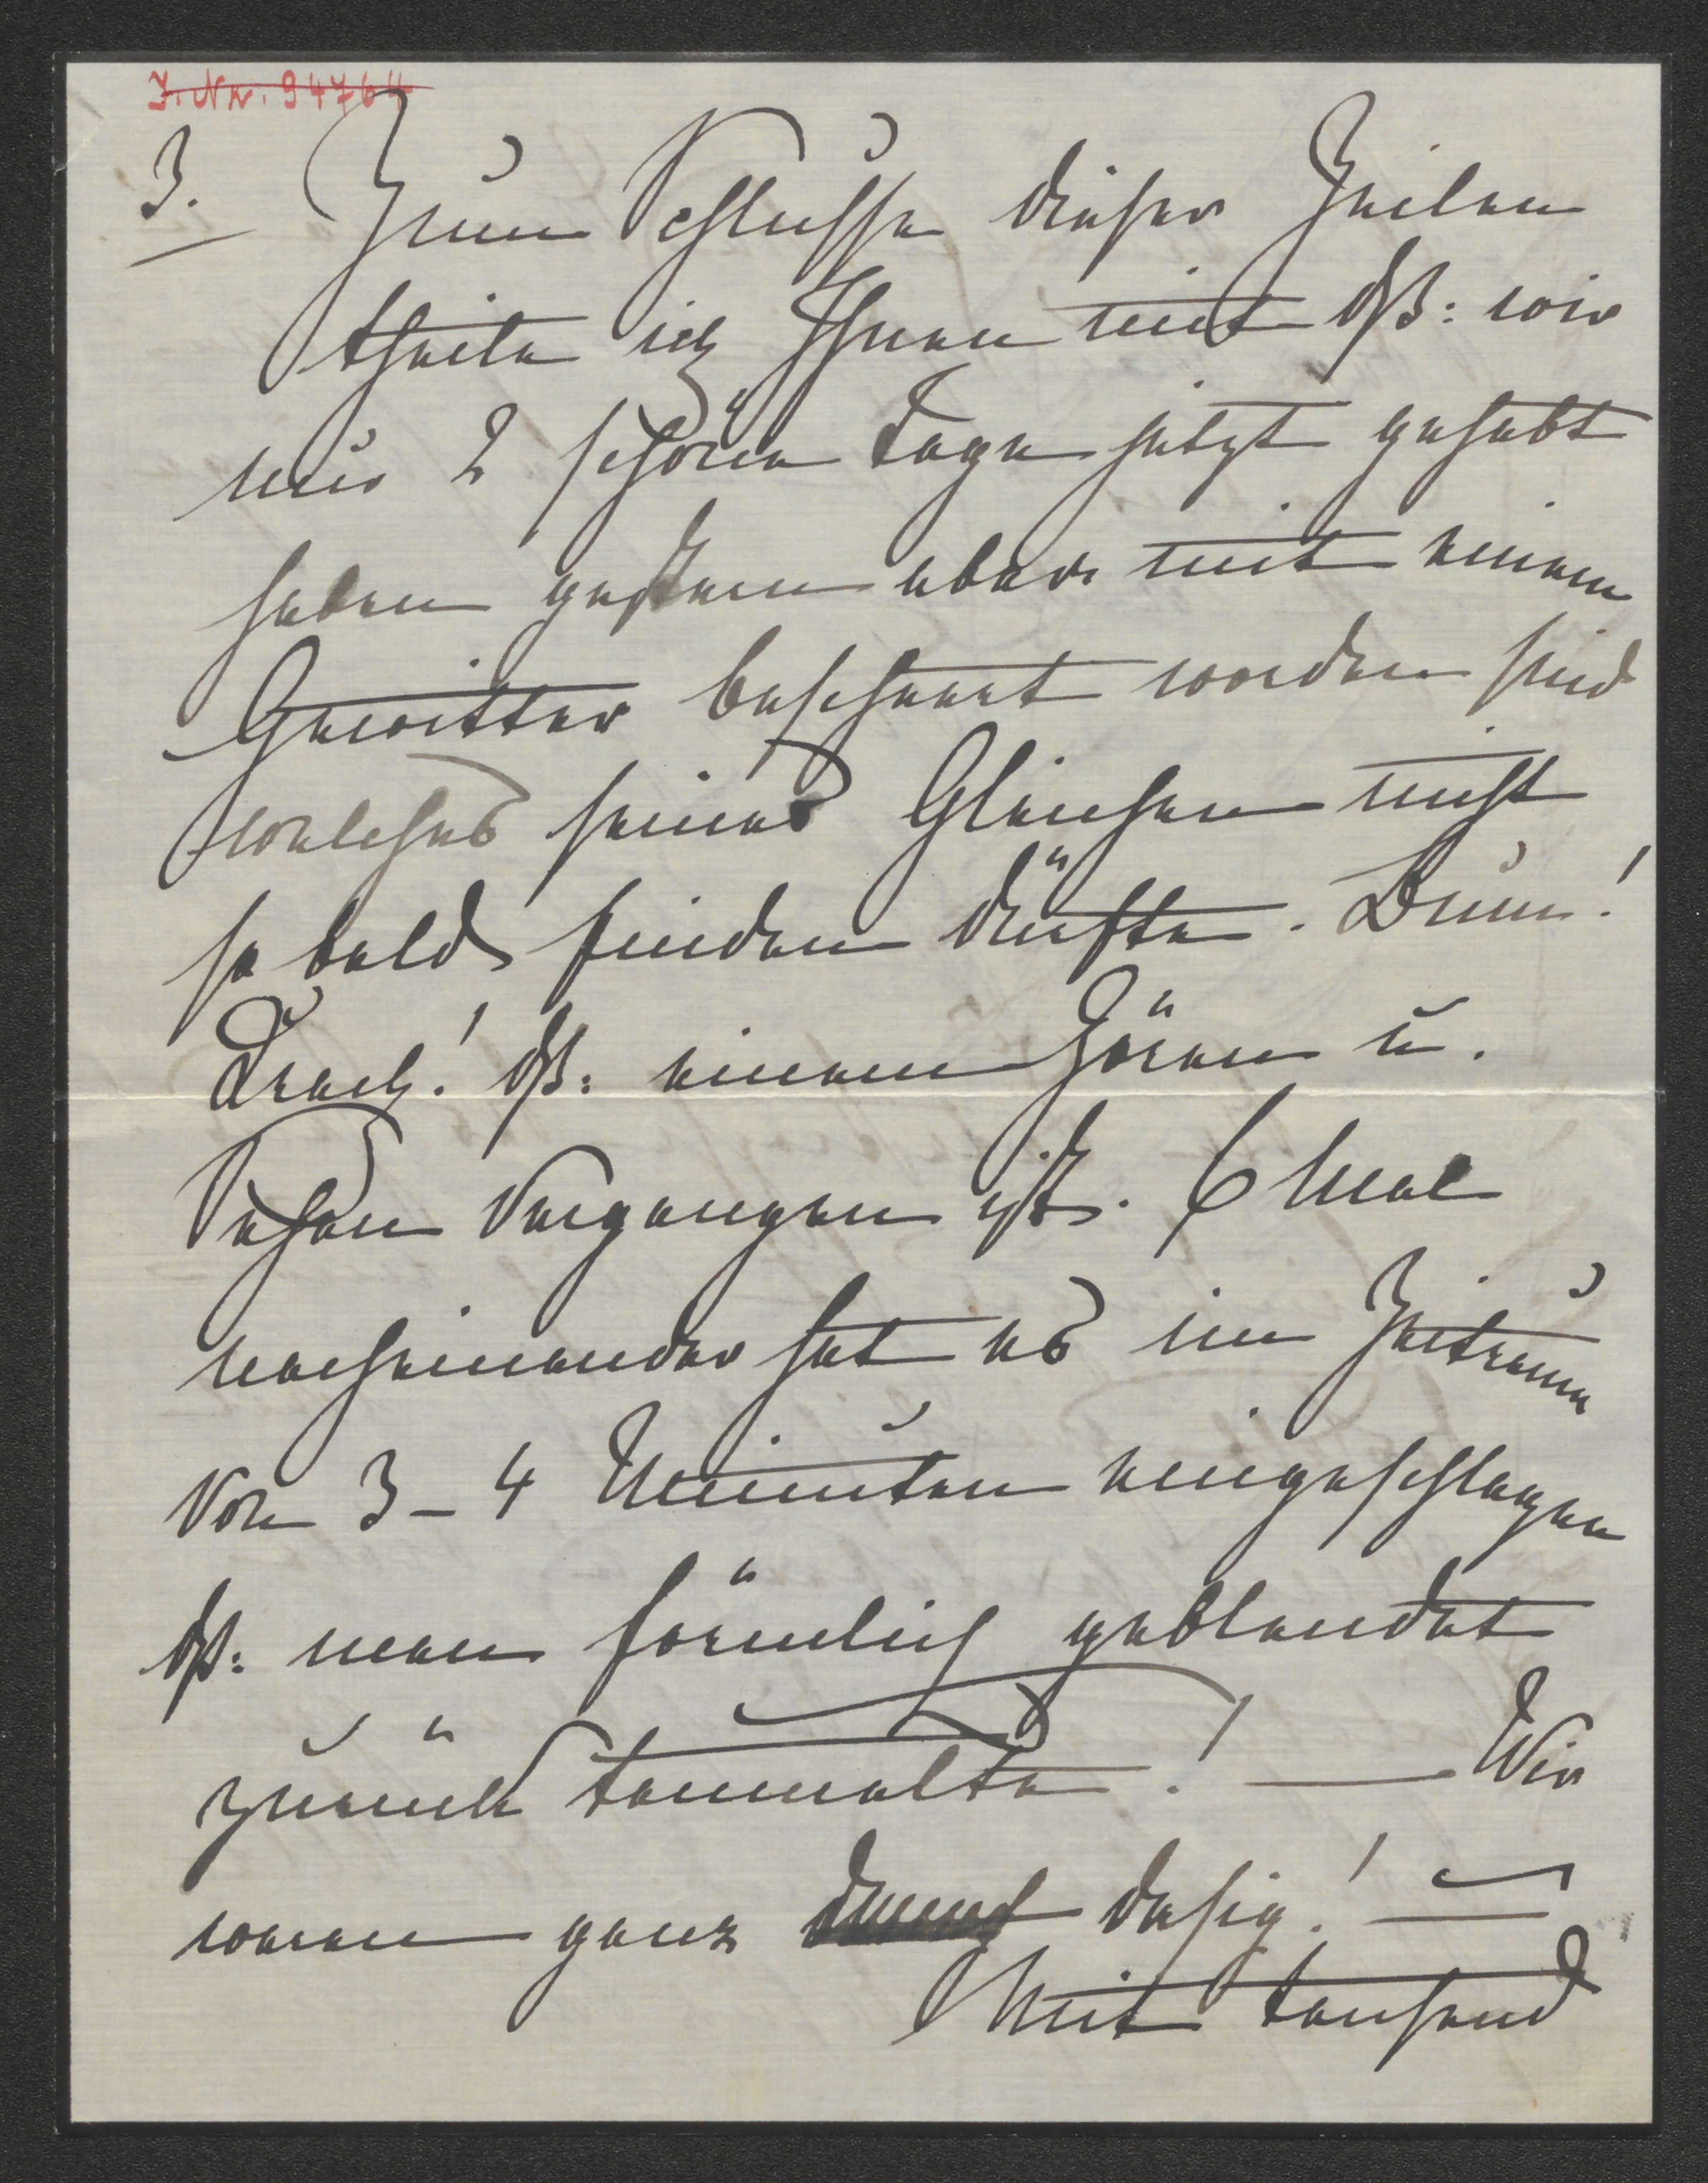 J. Nr. 94764
3. Zum Schlusse dieser Zeilen
theile ich Ihnen mit dß: wir
nur 2 schöne Tage jetzt gehabt
haben gestern aber mit einem
Gewitter bescheert worden sind
welches seines Gleichen nicht
so bald finden dürfte. Bum!
Krach! dß: einem Hören u.
Sehen vergangen ist. 6 Mal
nacheinander hat es im Zeitraum
von 3 – 4 Minuten eingeschlagen
dß: man förmlich geblendet
zurück taumelte! — Wir
waren ganz dasig! —
Mit tausend